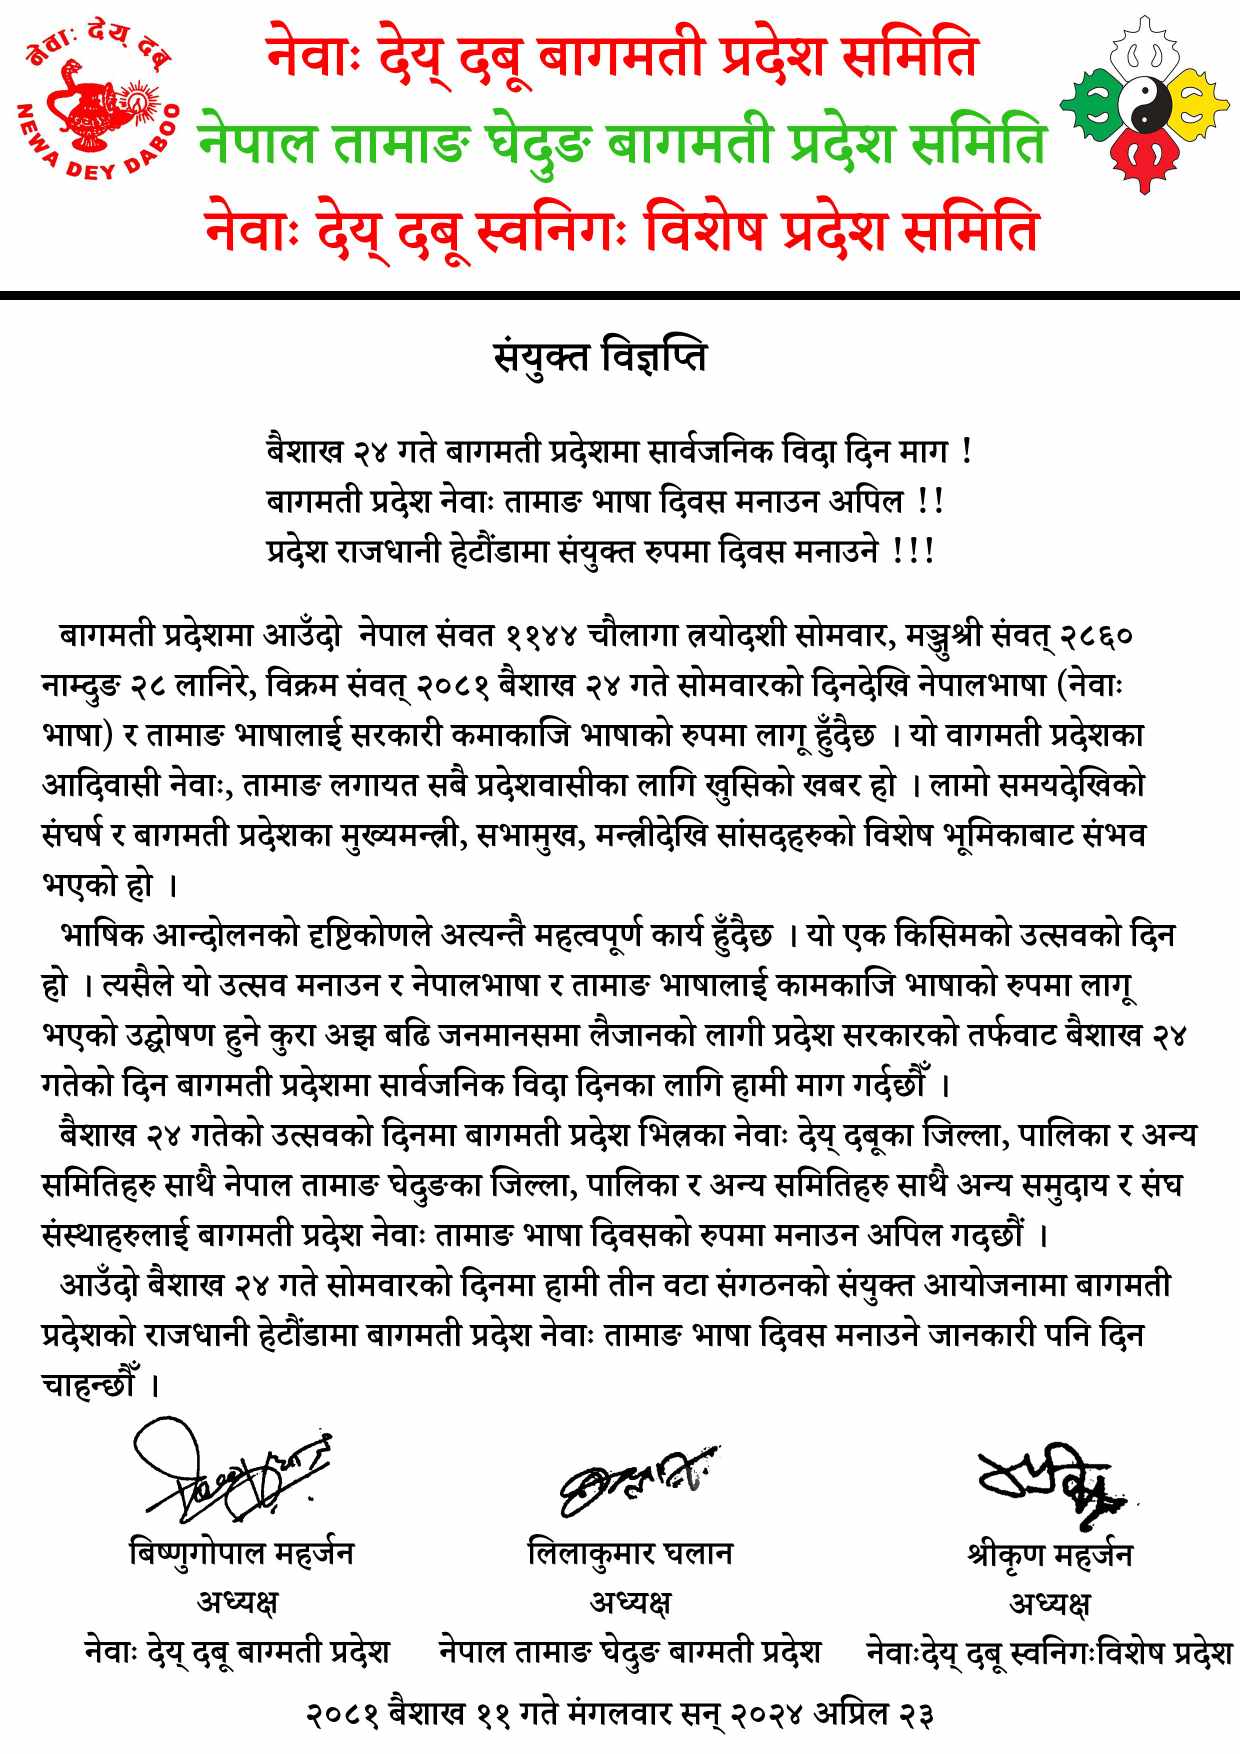 नेवाः देय् दबू
NEWA DEY DABOO
नेवाः देय् दबू बागमती प्रदेश समिति
नेपाल तामाङ घेदुङ बागमती प्रदेश समिति
नेवाः देय् दबू स्वनिगः विशेष प्रदेश समिति
संयुक्त विज्ञप्ति
बैशाख २४ गते बागमती प्रदेशमा सार्वजनिक विदा दिन माग !
बागमती प्रदेश नेवाः तामाङ भाषा दिवस मनाउन अपिल !!
प्रदेश राजधानी हेटौंडामा संयुक्त रुपमा दिवस मनाउने !!!
बागमती प्रदेशमा आउँदो नेपाल संवत ११४४ चौलागा त्रयोदशी सोमवार, मञ्जुश्री संवत् २८६०
नाम्दुङ २८ लानिरे, विक्रम संवत् २०८१ बैशाख २४ गते सोमवारको दिनदेखि नेपालभाषा (नेवाः
भाषा) र तामाङ भाषालाई सरकारी कमाकाजि भाषाको रुपमा लागू हुँदैछ । यो वागमती प्रदेशका
आदिवासी नेवाः, तामाङ लगायत सबै प्रदेशवासीका लागि खुसिको खबर हो । लामो समयदेखिको
संघर्ष र बागमती प्रदेशका मुख्यमन्त्री, सभामुख, मन्त्रीदेखि सांसदहरुको विशेष भूमिकाबाट संभव
भएको हो ।
भाषिक आन्दोलनको दृष्टिकोणले अत्यन्तै महत्वपूर्ण कार्य हुँदैछ । यो एक किसिमको उत्सवको दिन
हो । त्यसैले यो उत्सव मनाउन र नेपालभाषा र तामाङ भाषालाई कामकाजि भाषाको रुपमा लागू
भएको उद्घोषण हुने कुरा अझ बढि जनमानसमा लैजानको लागी प्रदेश सरकारको तर्फवाट बैशाख २४
गतेको दिन बागमती प्रदेशमा सार्वजनिक विदा दिनका लागि हामी माग गर्दछौँ ।
बैशाख २४ गतेको उत्सवको दिनमा बागमती प्रदेश भित्रका नेवाः देय् दबूका जिल्ला, पालिका र अन्य
समितिहरु साथै नेपाल तामाङ घेदुङका जिल्ला, पालिका र अन्य समितिहरु साथै अन्य समुदाय र संघ
संस्थाहरुलाई बागमती प्रदेश नेवाः तामाङ भाषा दिवसको रुपमा मनाउन अपिल गदछौं ।
आउँदो बैशाख २४ गते सोमवारको दिनमा हामी तीन वटा संगठनको संयुक्त आयोजनामा बागमती
प्रदेशको राजधानी हेटौंडामा बागमती प्रदेश नेवाः तामाङ भाषा दिवस मनाउने जानकारी पनि दिन
चाहन्छौँ ।
बिष्णुगोपाल महर्जन
अध्यक्ष
नेवाः देय् दबू बाग्मती प्रदेश
लिलाकुमार घलान
अध्यक्ष
नेपाल तामाङ घेदुङ बाग्मती प्रदेश
श्रीकृण महर्जन
अध्यक्ष
नेवाःदेय् दबू स्वनिगःविशेष प्रदेश
२०८१ बैशाख ११ गते मंगलवार सन् २०२४ अप्रिल २३